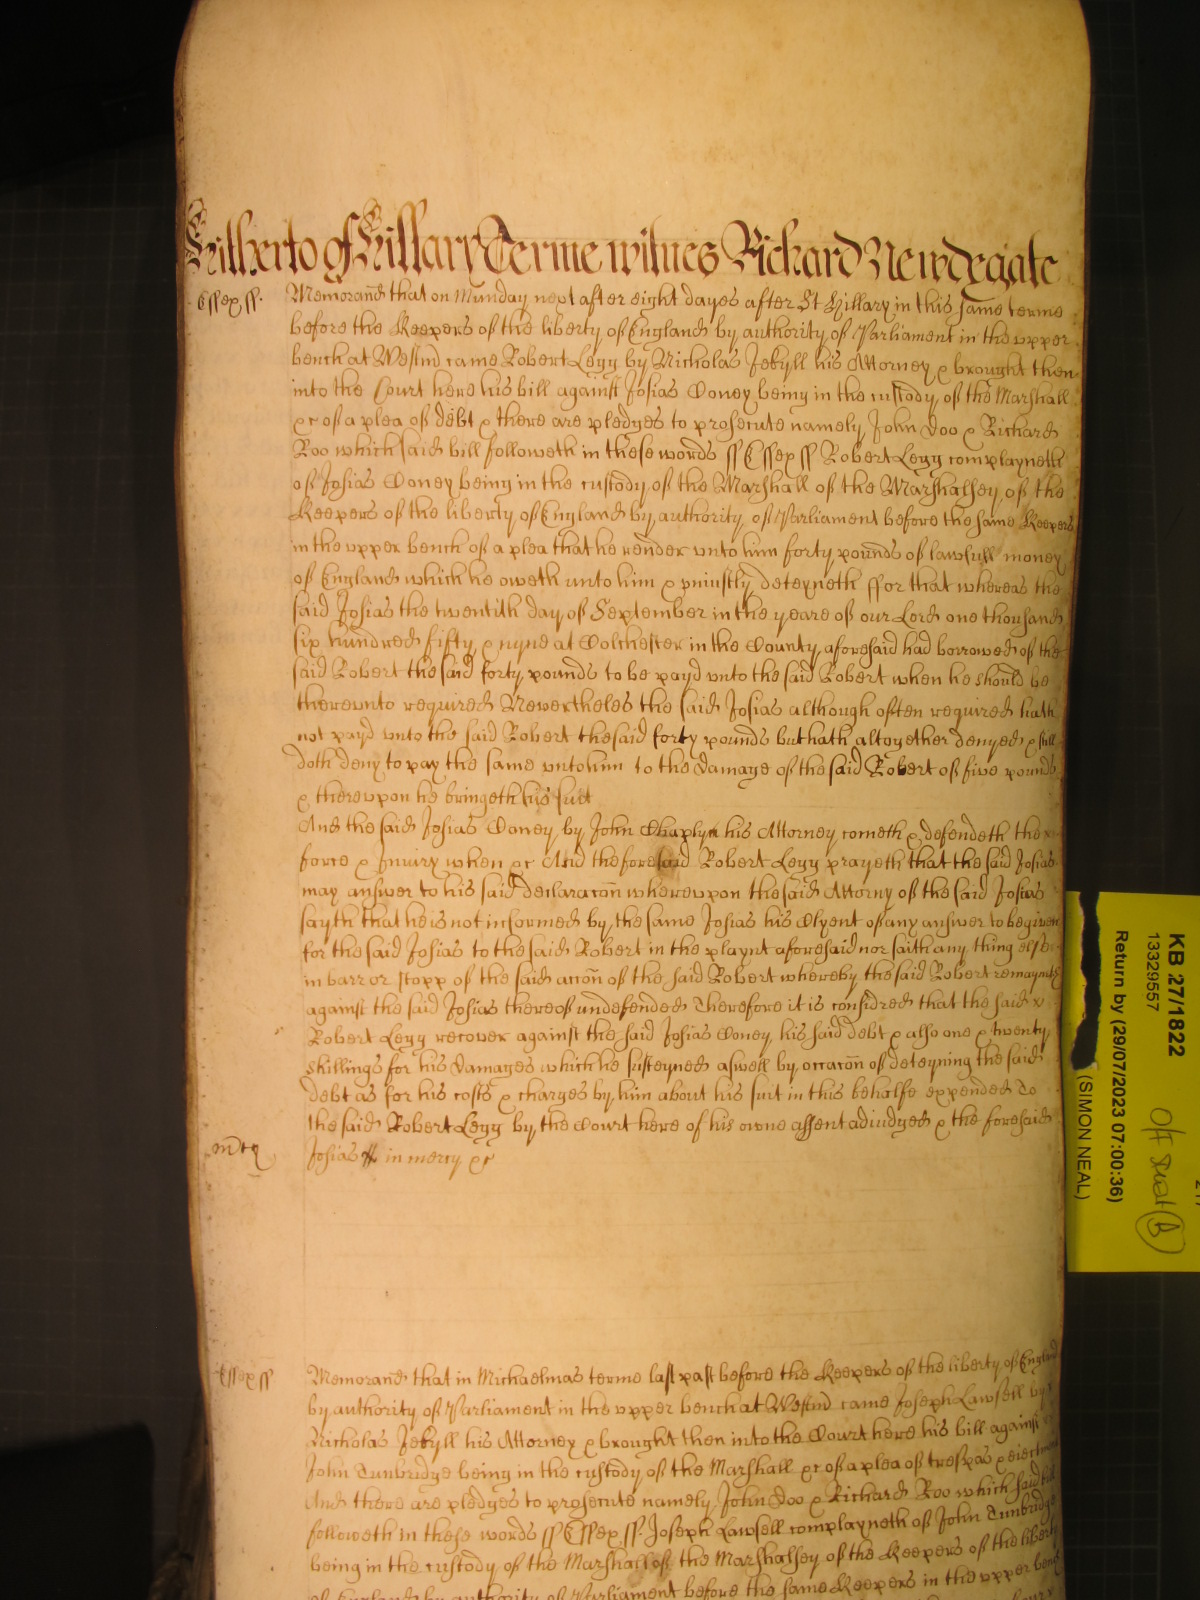 Hitherto of Hillary Terme witnes Richard Newdegate
Essex ss.
Memorand that on Munday next after eight dayes after St Hillary in this same terme
before the Keepers of the liberty of England by authority of Parliament in the upper
bench at Westmr came Robert Legg by Nicholas Jekyll his Attorney & brought then
into the Court here his bill against Josias Coney being in the custody of the Marshall
&c of a plea of debt & there are pledges to prosecute namely John Doo & Richard
Roo which said bill followeth in these words ss Essex ss Robert Legg complayneth
of Josias Coney being in the custody of the Marshall of the Marshalsey of the
Keepers of the liberty of England by authority of Parliament before the same Keepers
in the upper bench of a plea that he render unto him forty pounds of lawfull money
of England which he oweth unto him & uniustly deteyneth ffor that whereas the
said Josias the twentith day of September in the yeare of our Lord one thousand
six hundred fifty & nyne at Colchester in the County aforesaid had borrowed of the
said Robert the said forty pounds to be payd unto the said Robert when he should be
thereunto required Nevertheles the said Josias although often required hath
not payd unto the said Robert the said forty pounds but hath altogether denyed & still
doth deny to pay the same unto him to the damage of the said Robert of five pounds
& thereupon he bringeth his suit
And the said Josias Coney by John Chaplyn his Attorney cometh & defendeth the
force & Iniury when &c And the foresaid Robert Legg prayeth that the said Josias
may answer to his said declaracon whereupon the said Attorny of the said Josias
sayth that he is not informed by the same Josias his Clyent of any answer to be given
for the said Josias to the said Robert in the playnt aforesaid nor saith any thing else
in barr or stopp of the said accon of the said Robert whereby the said Robert remayneth
against the said Josias thereof undefended Therefore it is considred that the said
Robert Legg recover against the said Josias Coney his said debt & also one & twenty
shillings for his damages which he susteyned aswell by occacon of deteyning the said
debt as for his costs & charges by him about his suit in this behalfe expended To
the said Robert Legg by the Court here of his owne assent adiudged & the foresaid
Josias in mercy &c
Essex ss
Memorand that in Michaelmas terme last past before the Keepers of the liberty of England
by authority of Parliament in the upper bench at Westmr came Joseph Lawsell by
Nicholas Jekyll his Attorney & brought then into the Court here his bill against
John Tunbridge being in the custody of the Marshall &c of a plea of trespas & eiectment
And there are pledges to prosecute namely John Doo & Richard Roo which said bill
followeth in these words ss Essex ss. Joseph Lawsell complayneth of John Tunbridge
being in the custody of the Marshall of the Marshalsey of the Keepers of the liberty
of England by authority of Parliament before the same Keepers in the upper bench
KB 27/1822
13329557
Return by (29/07/2023 07:00:36)
(SIMON NEAL)